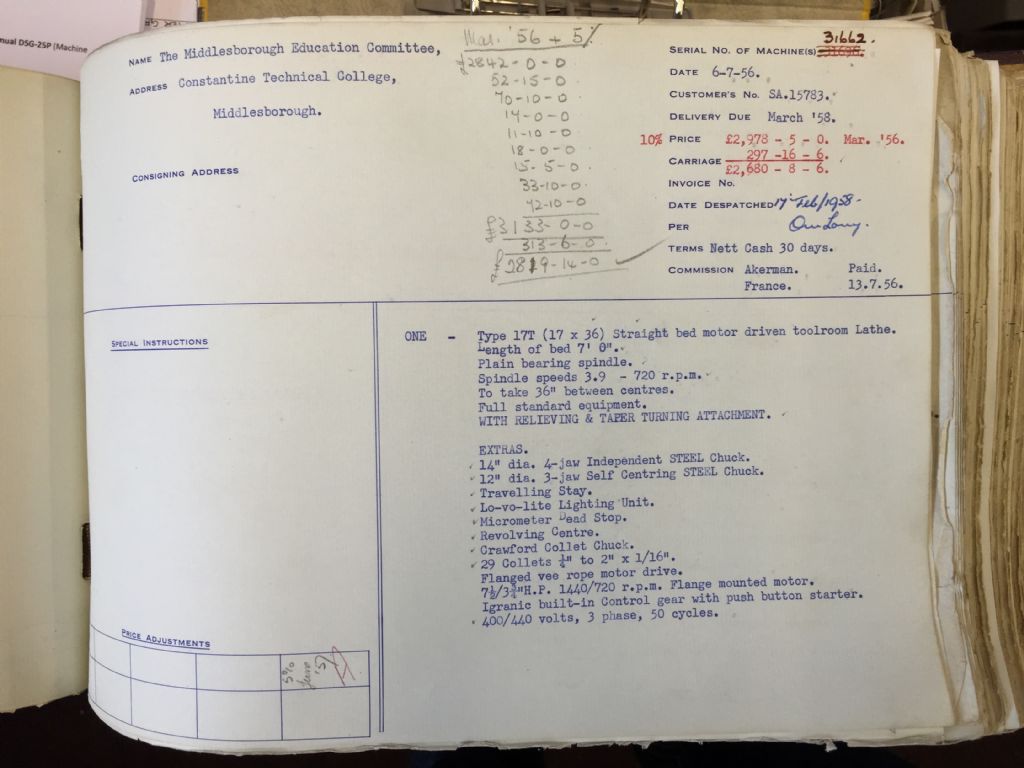 nual DSG-25P (Machine
NAME The Middlesborough Education Committee,
ADDRESS Constantine Technical College,
Middlesborough.
CONSIGNING ADDRESS
Mar. '56 + 5%
£2842-0-0
52-15-0
70-10-0
14-0-0
11-10-0
18-0-0
15-5-0
33-10-0
42-10-0
£3133-0-0
313-6-0
£2819-14-0
31662.
SERIAL NO. OF MACHINE(S)
DATE 6-7-56.
CUSTOMER'S NO. SA.15783.
DELIVERY DUE March '58.
10% PRICE £2,978 - 5 - 0. Mar. '56.
CARRIAGE 297 -16 - 6.
£2,680 - 8 - 6.
INVOICE NO.
DATE DESPATCHED 17 Feb/1958-
PER
TERMS Nett Cash 30 days.
COMMISSION Akerman. Paid.
France. 13.7.56.
SPECIAL INSTRUCTIONS
ONE - Type 17T (17 x 36) Straight bed motor driven toolroom Lathe.
Length of bed 7' 0".
Plain bearing spindle.
Spindle speeds 3.9 - 720 r.p.m.
To take 36" between centres.
Full standard equipment.
WITH RELIEVING & TAPER TURNING ATTACHMENT.
EXTRAS.
14" dia. 4-jaw Independent STEEL Chuck.
12" dia. 3-jaw Self Centring STEEL Chuck.
Travelling Stay.
Lo-vo-lite Lighting Unit.
Micrometer Dead Stop.
Revolving Centre.
Crawford Collet Chuck.
29 Collets ¼" to 2" x 1/16".
Flanged vee rope motor drive.
7½/3¾"H.P. 1440/720 r.p.m. Flange mounted motor.
Igranic built-in Control gear with push button starter.
400/440 volts, 3 phase, 50 cycles.
PRICE ADJUSTMENTS
5%
June
'57